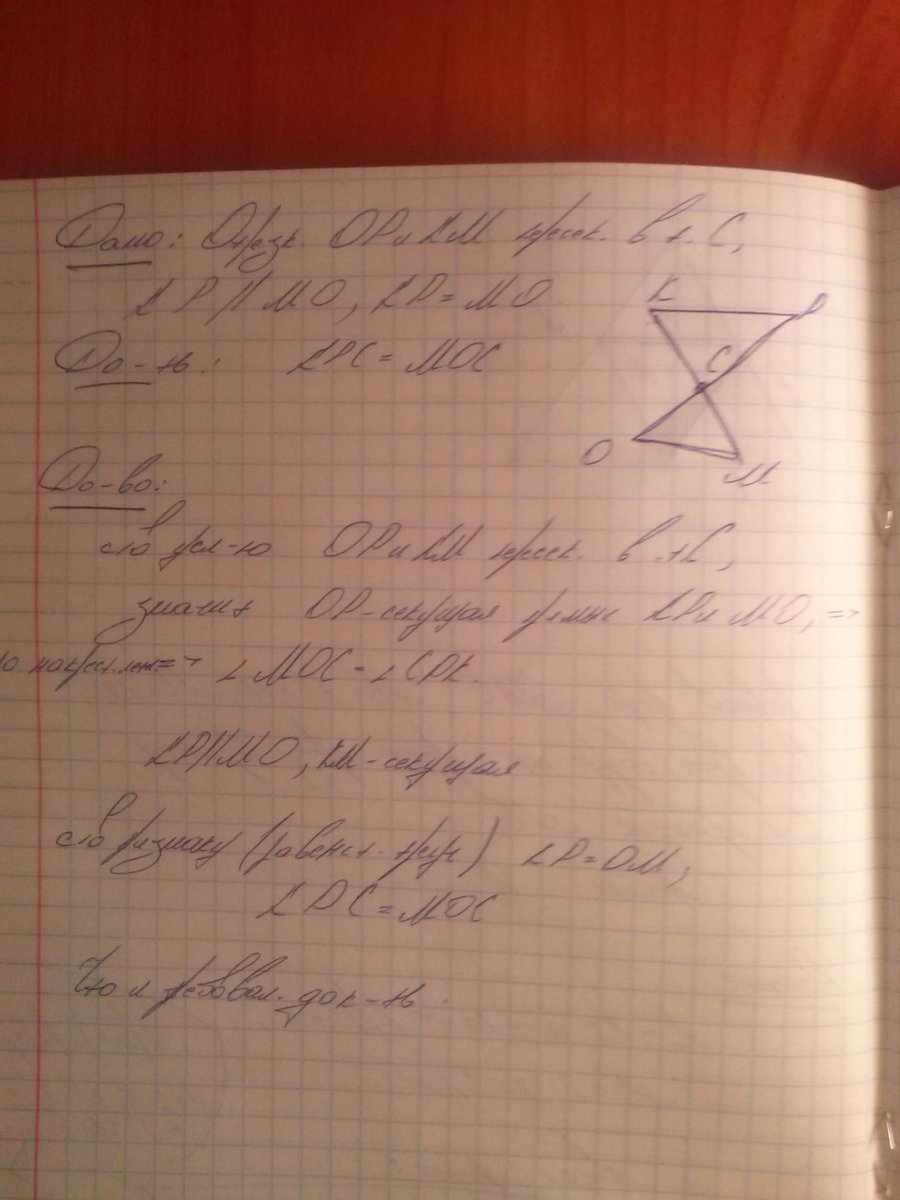 Дано: Отрезк OP и KM пересек. в т. C,
KP // MO, KP = MO
K
P
До-ть: KPC = MOC
C
O
M
До-во:
по усл-ю OP и KM пересек. в т. C,
значит OP - секущая прямых KP и MO, =>
∠ MOC = ∠ CPK.
KP//MO, KM - секущая
по признаку (равенст. треуг) KP = OM,
KPC = MOC
Что и требовал. док-ть.